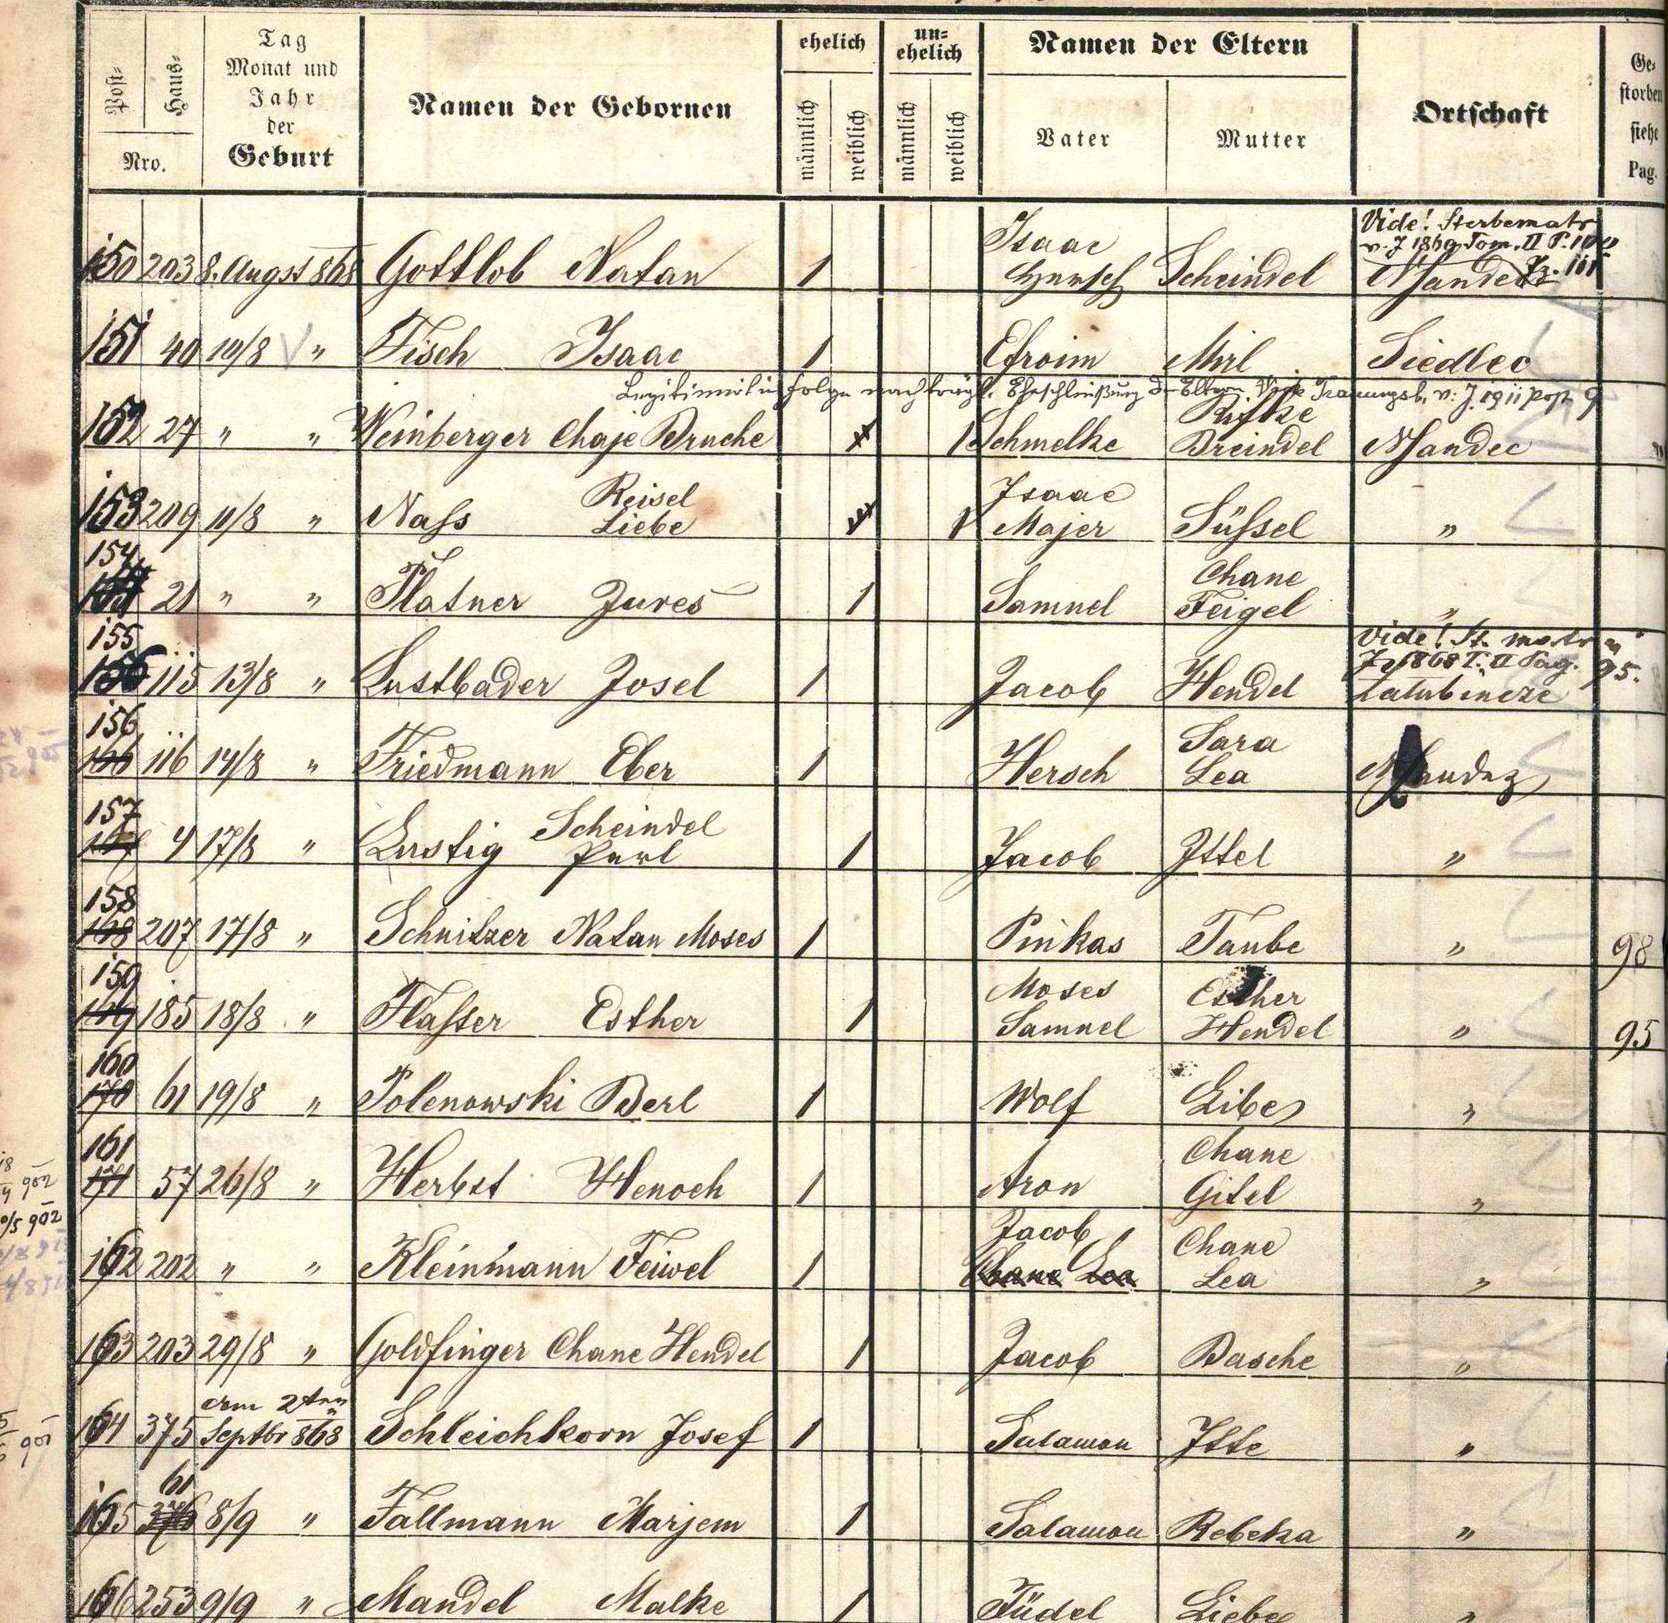 Post- Haus- Nro.
Tag Monat und Jahr der Geburt
Namen der Gebornen
ehelich männlich weiblich
un-ehelich männlich weiblich
Namen der Eltern
Vater Mutter
Ortschaft
Ge-storben siehe Pag.
Vide! Sterbematr
v. J 1869 Tom. II P.
Isaac
150 203 8. Augst 868 Gottlob Natan 1 Hersch Scheindel NSandec
151 40 10/8 " Fisch Isaac 1 Efroim Mirl Siedlec
Legitimirt in Folge nachträgl. Eheschließung der Eltern Vide Trauungsb. v. J. 1911 post 9
Rifke
152 27 " " Weinberger Chaje Bruche 1 Schmelke Breindel NSandec
Reisel Isaac
153 209 11/8 " Nass Liebe 1 Majer Süssel "
154 Chane
21 " " Flatner Jures 1 Samuel Feigel "
155 Vide! St. matr
J 1868 T. II Pag. 95.
115 13/8 " Lustbader Josel 1 Jacob Hendel Zalubincze
156 Sara
116 14/8 " Friedmann Eber 1 Hersch Lea NSandez
157 Scheindel
4 17/8 " Lustig Perl 1 Jacob Ittel "
158
207 17/8 " Schnitzer Natan Moses 1 Pinkas Taube " 98
159 Moses Esther
185 18/8 " Flasser Esther 1 Samuel Hendel " 95
160
170 61 19/8 " Polenowski Berl 1 Wolf Libe "
161 Chane
171 57 26/8 " Herbst Henoch 1 Aron Gitel "
Jacob Chane
162 202 " " Kleinmann Feiwel 1 Chane Lea Lea "
163 203 29/8 " Goldfinger Chane Hendel 1 Jacob Basche "
dem 2ten
164 375 Septbr 868 Schleichkorn Josef 1 Salamon Itte "
61
165 376 8/9 " Fallmann Marjem 1 Salamon Rebeka "
166 253 9/9 " Mandel Malke 1 Jüdel Liebe "